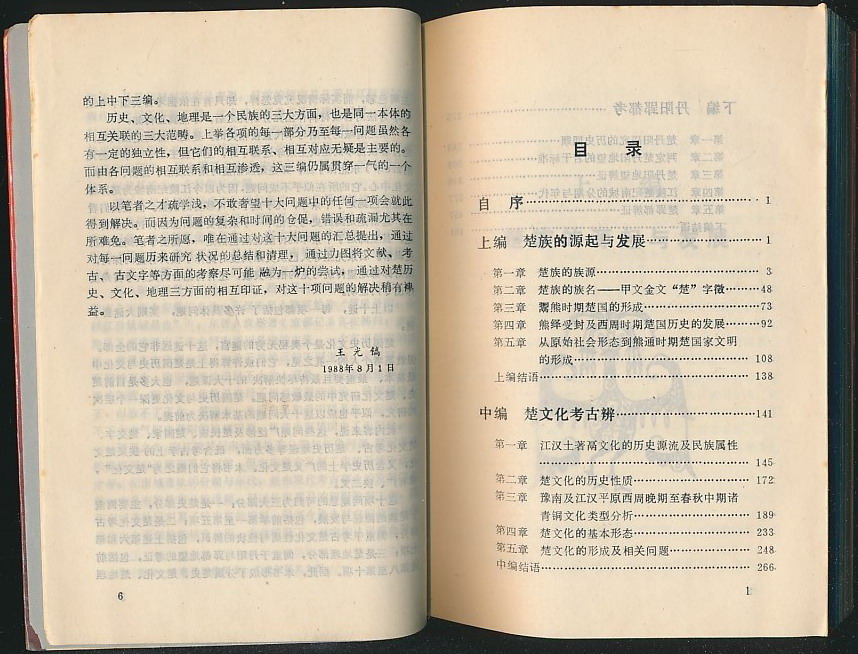 的上中下三编。
历史、文化、地理是一个民族的三大方面，也是同一本体的
相互关联的三大范畴。上举各项的每一部分乃至每一问题虽然各
有一定的独立性，但它们的相互联系、相互对应无疑是主要的。
而由各问题的相互联系和相互渗透，这三编仍属贯穿一气的一个
体系。
以笔者之才疏学浅，不敢奢望十大问题中的任何一项会就此
得到解决。而因为问题的复杂和时间的仓促，错误和疏漏尤其在
所难免。笔者之所愿，唯在通过对这十大问题的汇总提出，通过
对每一问题历来研究状况的总结和清理，通过力图将文献、考
古、古文字等方面的考察尽可能融为一炉的尝试，通过对楚历
史、文化、地理三方面的相互印证，对这十项问题的解决稍有裨
益。
王光镐
1988年8月1日
6
目 录
自 序……………………………………1
上编 楚族的源起与发展………………1
第一章 楚族的族源……………………3
第二章 楚族的族名——甲文金文“楚”字微……48
第三章 鬻熊时期楚国的形成…………73
第四章 熊绎受封及西周时期楚国历史的发展……92
第五章 从原始社会形态到熊通时期楚国家文明
的形成…………………………108
上编结语………………………………138
中编 楚文化考古辨……………………141
第一章 江汉土著鬲文化的历史源流及民族属性
……………………………………145
第二章 楚文化的历史性质……………172
第三章 豫南及江汉平原西周晚期至春秋中期诸
青铜文化类型分析……………189
第四章 楚文化的基本形态……………233
第五章 楚文化的形成及相关问题……248
中编结语………………………………266
1